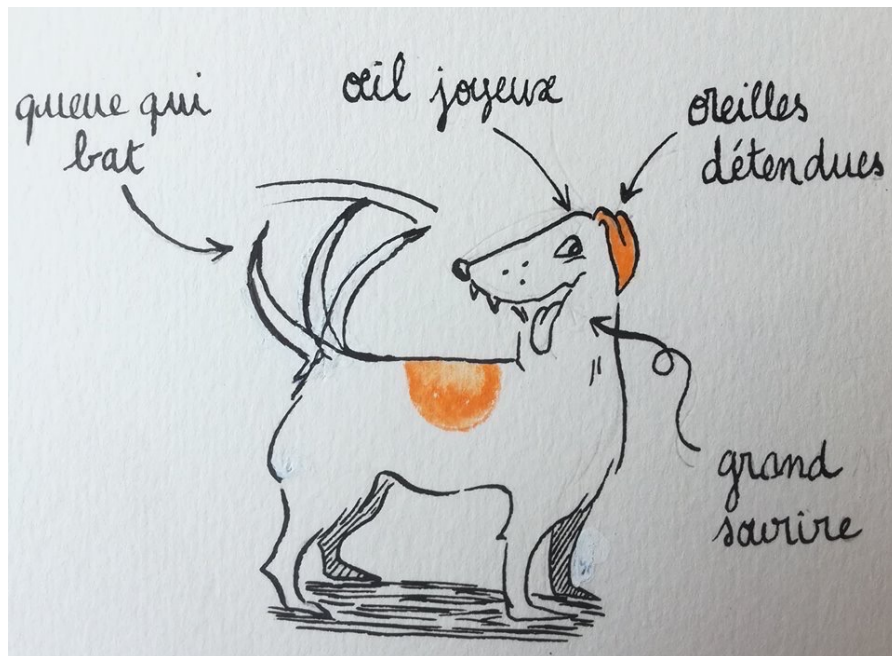 queue qui
bat
œil joyeux
oreilles
détendues
grand
sourire